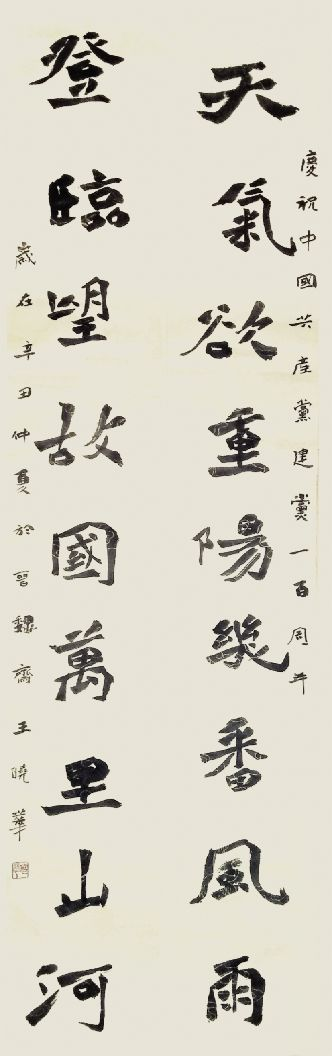 慶祝中國共産黨建黨一百周年
天氣欲重陽幾番風雨
登臨望故國萬里山河
歲在辛丑仲夏於習魏齋王曉華